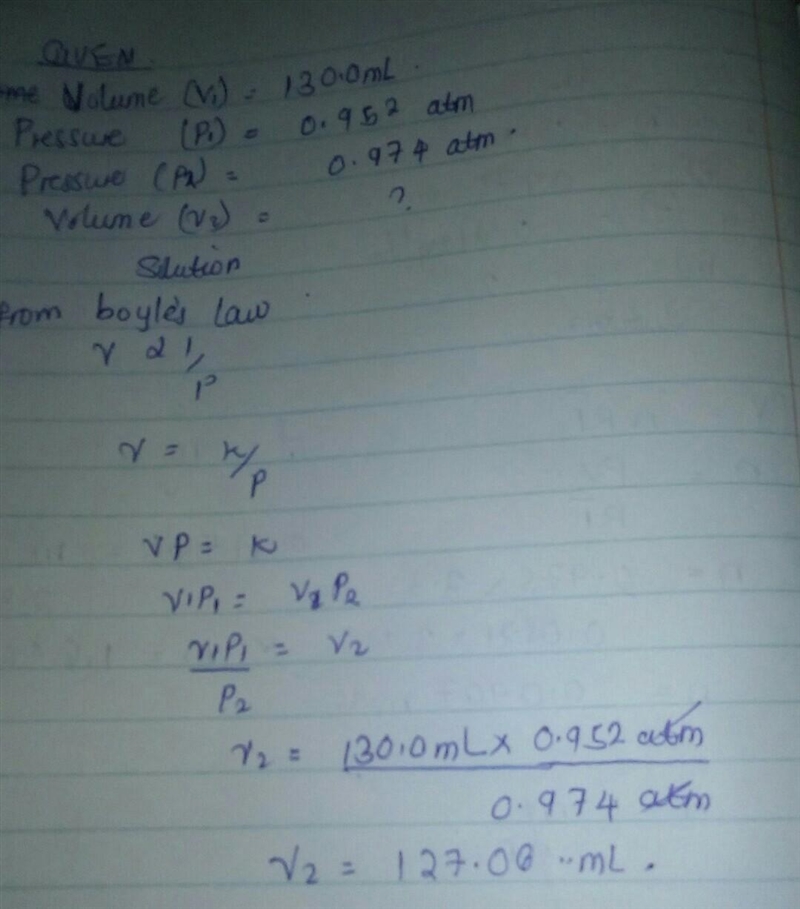 GIVEN
Volume (V1) = 130.0mL.
Pressure (P1) = 0.952 atm
Pressure (P2) = 0.974 atm.
Volume (V2) = ?
Solution
From boyle's Law
V α 1/P
V = K/P
VP = K
V1P1 = V2P2
V1P1/P2 = V2
V2 = 130.0mL x 0.952 atm
0.974 atm
V2 = 127.06 mL.